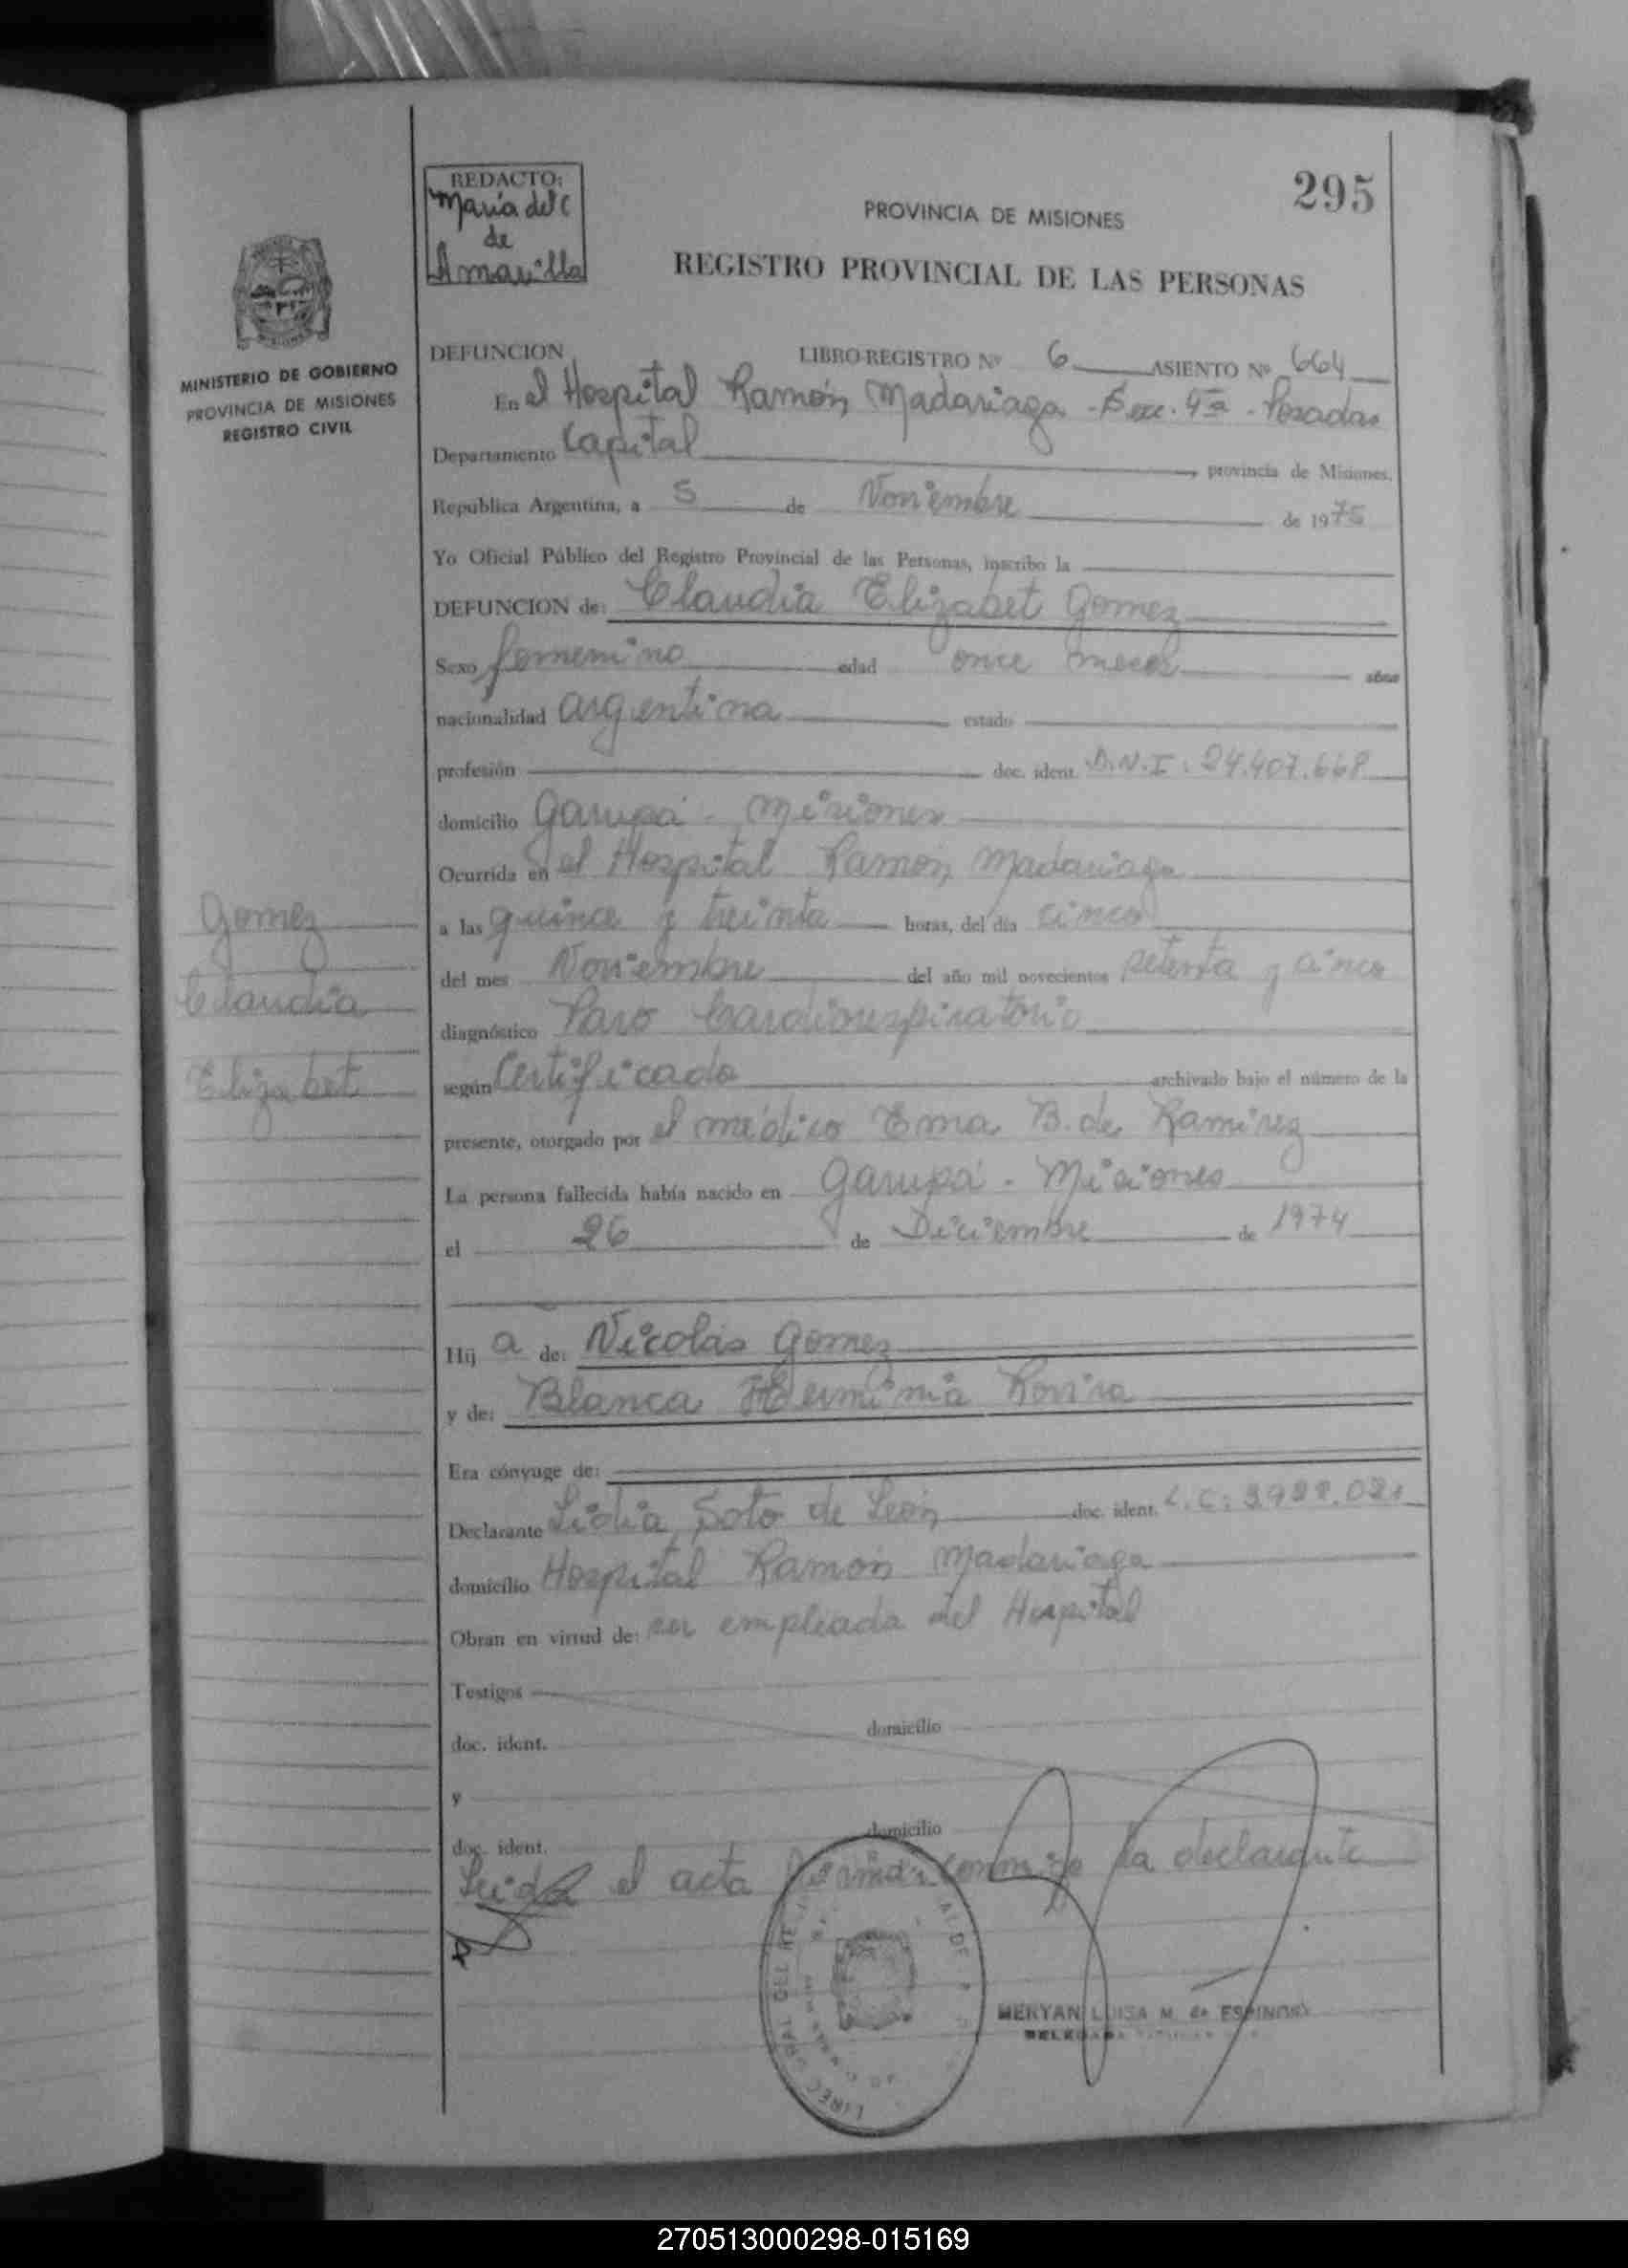 REDACTO:
María del C
de
Amarilla
295
PROVINCIA DE MISIONES
REGISTRO PROVINCIAL DE LAS PERSONAS
MINISTERIO DE GOBIERNO
PROVINCIA DE MISIONES
REGISTRO CIVIL
DEFUNCION LIBRO-REGISTRO Nº 6 ASIENTO Nº 664
En el Hospital Ramón Madariaga - Secc. 4ª - Posadas
Departamento Capital, provincia de Misiones.
República Argentina, a 5 de Noviembre de 1975
Yo Oficial Público del Registro Provincial de las Personas, inscribo la
DEFUNCION de: Claudia Elizabet Gomez
Sexo femenino edad once meses años
nacionalidad argentina estado
profesión doc. ident. D.N.I: 24.407.668
domicilio Garupá - Misiones
Ocurrida en el Hospital Ramón Madariaga
Gomez
a las quince y treinta horas, del día cinco
del mes Noviembre del año mil novecientos setenta y cinco
Claudia
diagnóstico Paro Cardiorespiratorio
Elizabet
según Certificado archivado bajo el número de la
presente, otorgado por el médico Ema B. de Ramirez
La persona fallecida había nacido en Garupá - Misiones
el 26 de Diciembre de 1974
Hij a de: Nicolás Gomez
y de: Blanca Herminia Rovira
Era cónyuge de:
Declarante Lidia Soto de León doc. ident. L.C: 3.922.021
domicilio Hospital Ramón Madariaga
Obran en virtud de: ser empleada del Hospital
Testigos
doc. ident. domicilio
y
doc. ident. domicilio
Leida el acta firma conmigo la declarante
MERYAN LUISA M. de ESPINOSA
DELEGADA
270513000298-015169